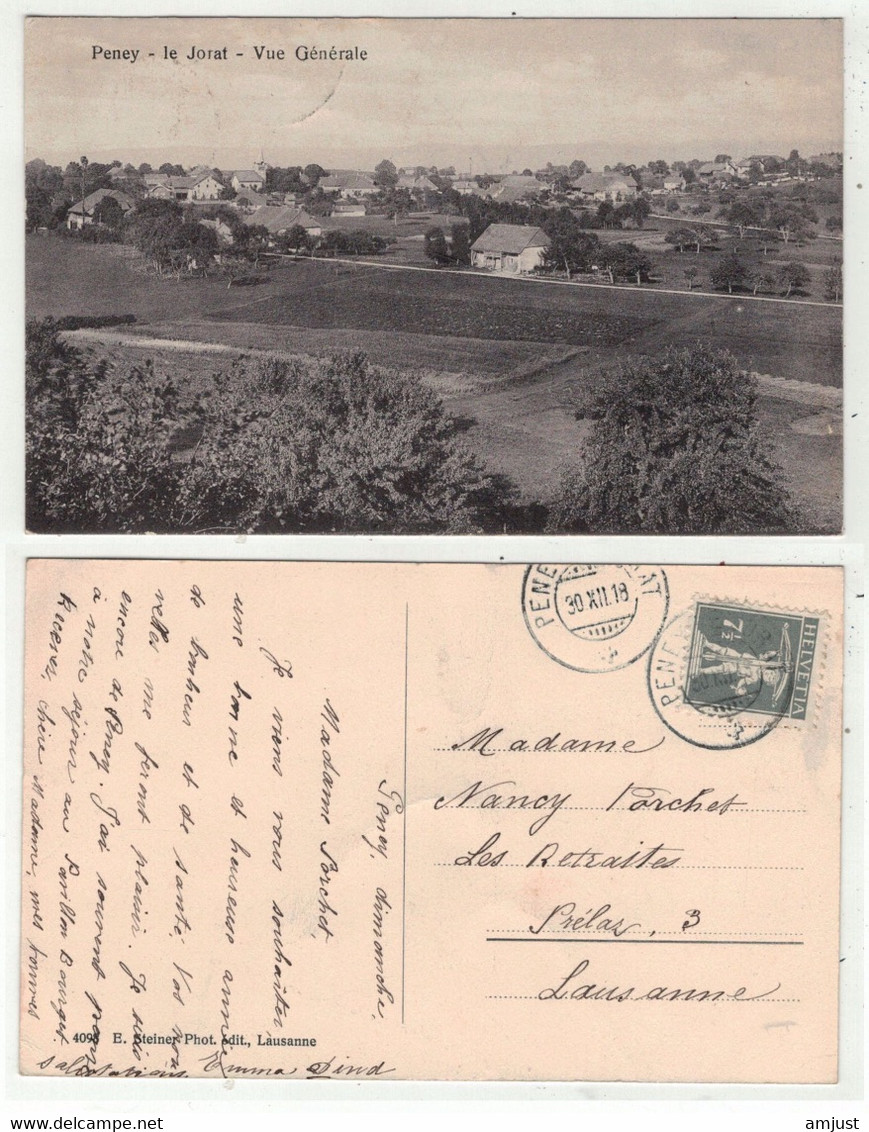 Peney - le Jorat - Vue Générale
PENEY-LE-JORAT
30 XII.18
PENEY
HELVETIA
7½
Peney, dimanche.
Madame Porchet,
Je viens vous souhaiter
une bonne et heureuse année
de bonheur et de santé. Vos nou
velles me feront plaisir. Je suis
encore de Peney. J'ai souvent pensé
à notre séjour au Pavillon Bourget.
Recevez, chère Madame, mes bonnes
salutations Emma Dind
Madame
Nancy Porchet
Les Retraites
Prélaz, 3
Lausanne
4098 E. Steiner Phot. édit., Lausanne
amjust